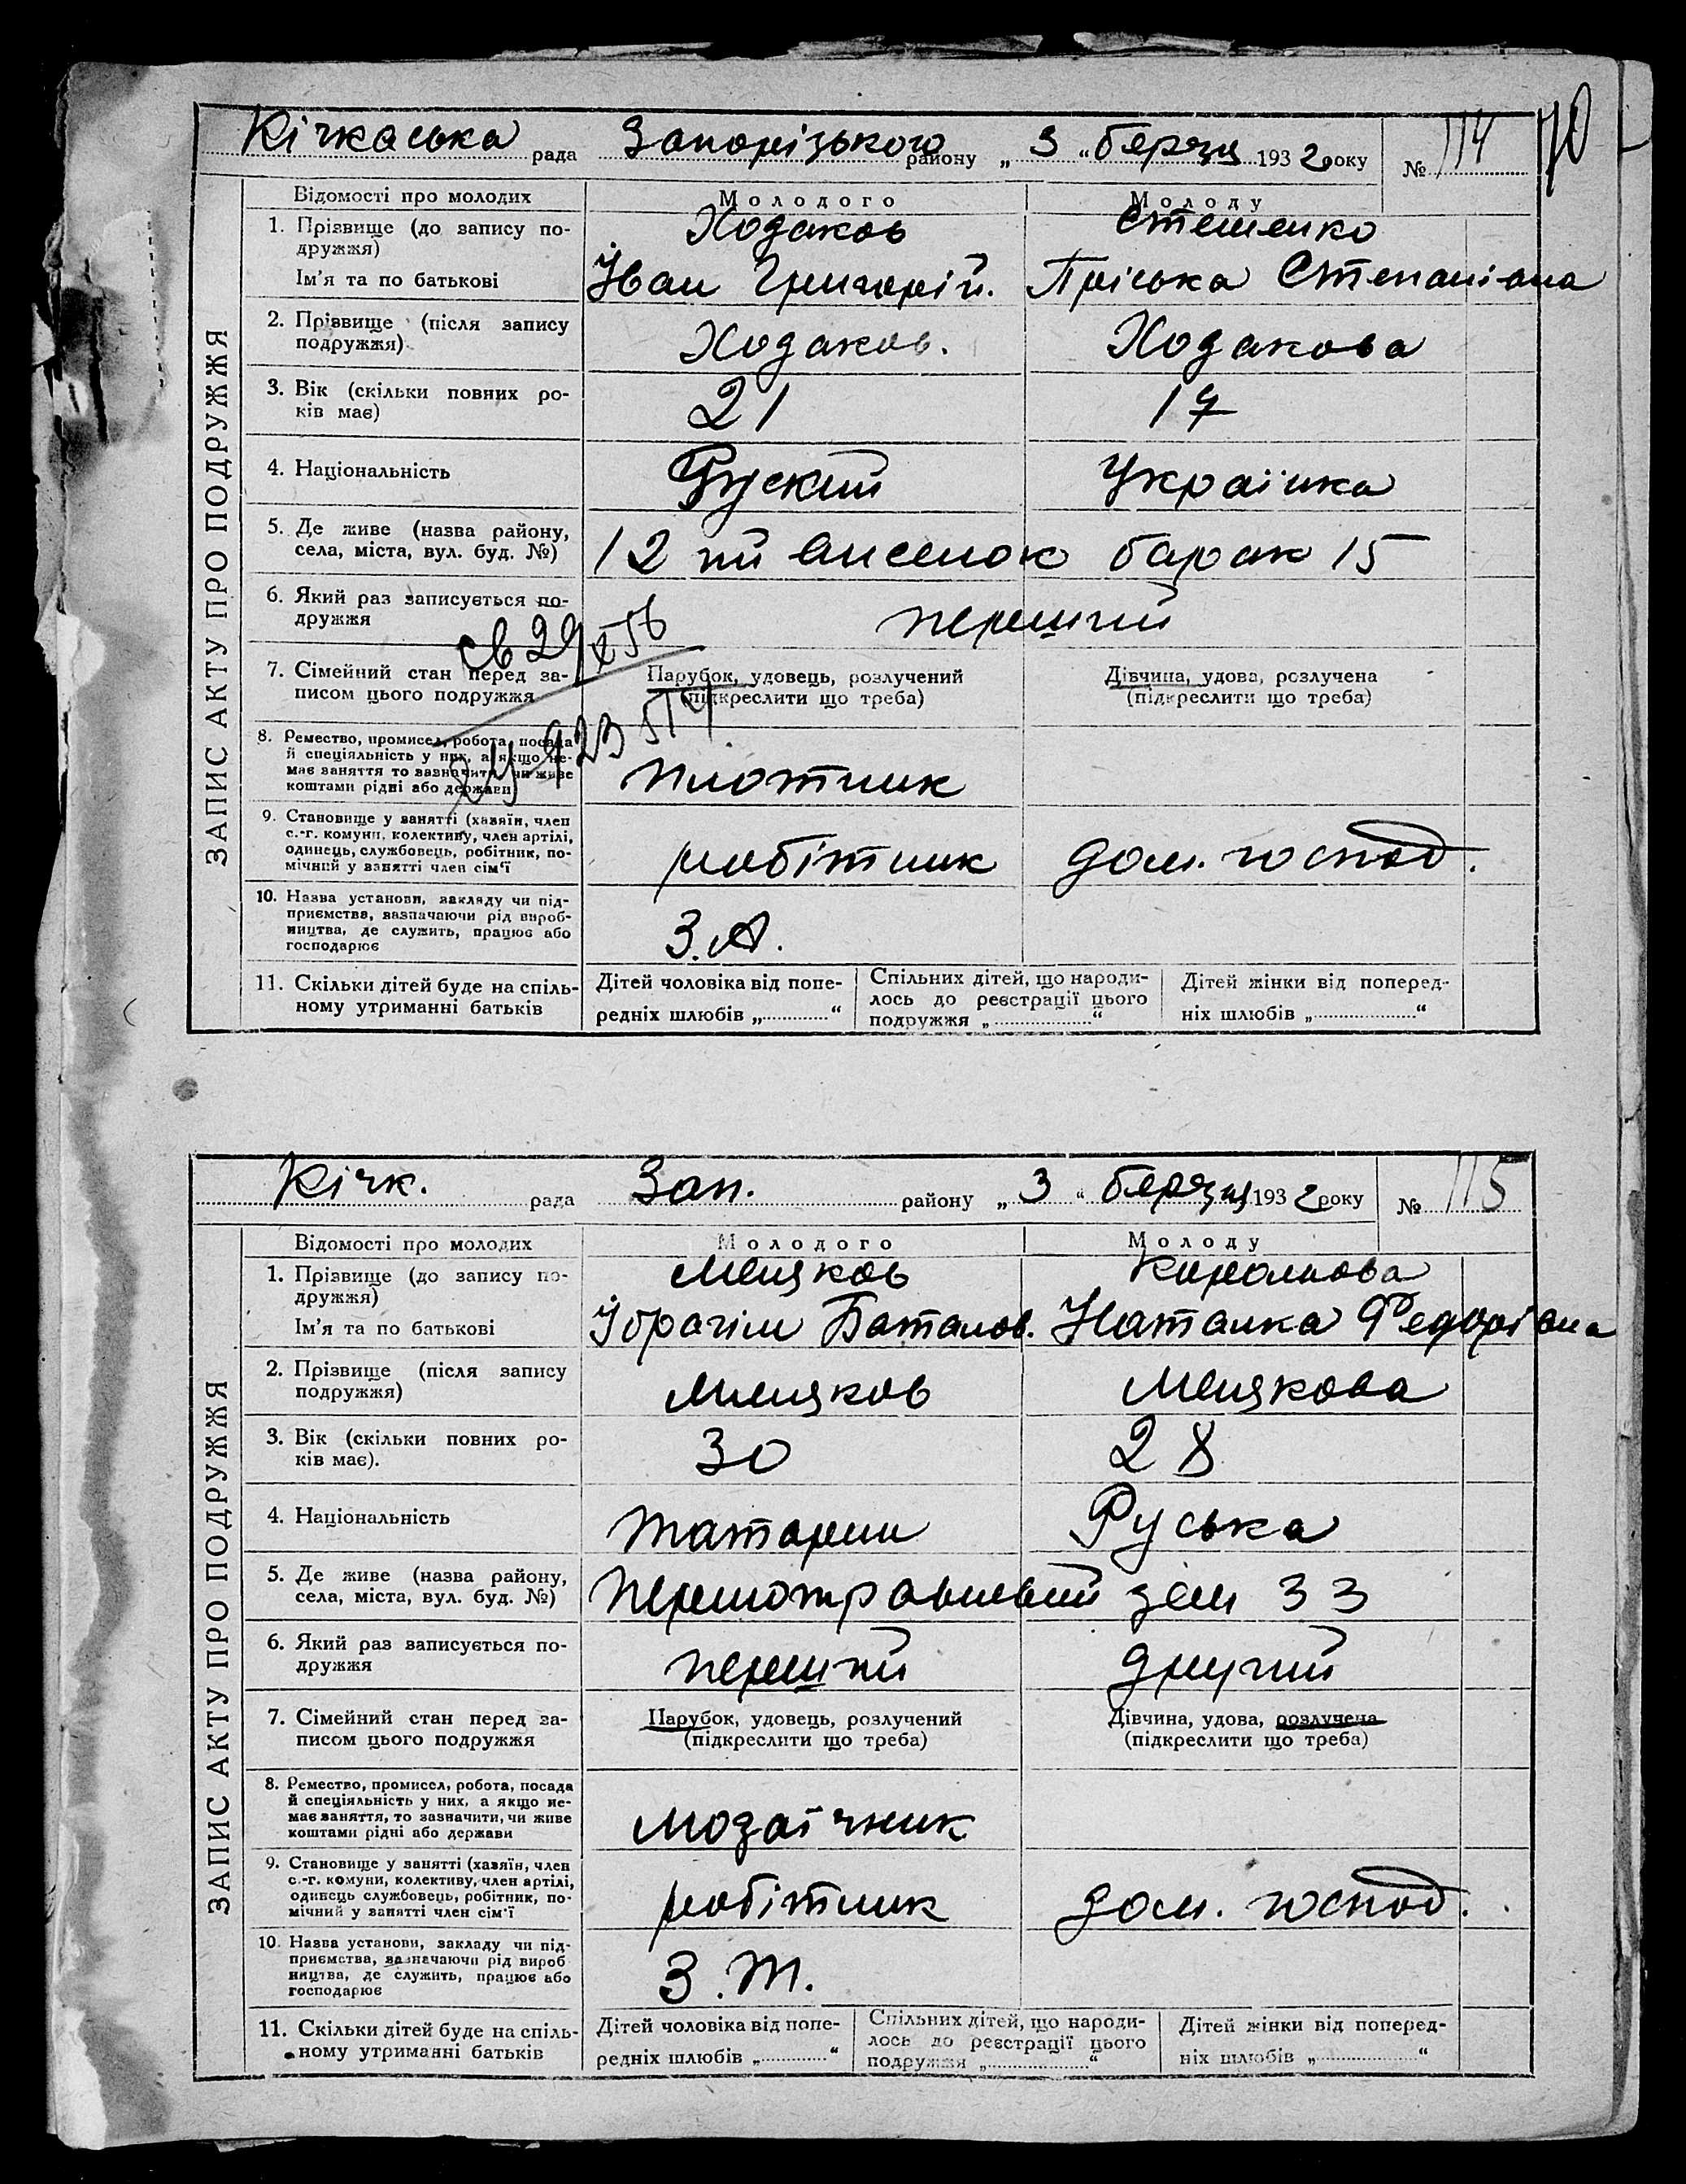 Кічкаська рада Запорізького району „ 3 “ березня 1932 року № 114 70
ЗАПИС АКТУ ПРО ПОДРУЖЖЯ
Відомості про молодих Молодого Молоду
1. Прізвище (до запису по- Ходаков Стешенко
дружжя)
Ім'я та по батькові Іван Григорій. Пріська Степанівна
2. Прізвище (після запису Ходаков. Ходакова
подружжя)
3. Вік (скільки повних ро- 21 17
ків має)
4. Національність Руский Українка
5. Де живе (назва району,
села, міста, вул. буд. №) 12 ий виселок барак 15
6. Який раз записується по- перший
дружжя
св 29 х 56
7. Сімейний стан перед за- Парубок, удовець, розлучений Дівчина, удова, розлучена
писом цього подружжя (підкреслити що треба) (підкреслити що треба)
8. Ремество, промисел, робота, посада
й спеціяльність у них, а якщо не-
має заняття то зазначити, чи живе плотник
коштами рідні або держави
9. Становище у занятті (хазяїн, член
с.-г. комуни, колективу, член артілі,
одинець, службовець, робітник, по- робітник дом. господ.
мічний у занятті член сім'ї
10. Назва установи, закладу чи під-
приємства, зазначаючи рід вироб-
ництва, де служить, працює або З.А.
господарює
11. Скільки дітей буде на спіль- Дітей чоловіка від попе- Спільних дітей, що народи- Дітей жінки від поперед-
ному утриманні батьків редніх шлюбів „ “ лось до реєстрації цього ніх шлюбів „ “
подружжя „ “
Кічк. рада Зап. району „ 3 “ березня 1932 року № 115
ЗАПИС АКТУ ПРО ПОДРУЖЖЯ
Відомості про молодих Молодого Молоду
1. Прізвище (до запису по-
дружжя)
Ім'я та по батькові Ібрагім Баталов. Наталка Федорівна
2. Прізвище (після запису
подружжя)
3. Вік (скільки повних ро- 30 28
ків має).
4. Національність татарин Руська
5. Де живе (назва району,
села, міста, вул. буд. №) 33
6. Який раз записується по- перший другий
дружжя
7. Сімейний стан перед за- Парубок, удовець, розлучений Дівчина, удова, розлучена
писом цього подружжя (підкреслити що треба) (підкреслити що треба)
8. Ремество, промисел, робота, посада
й спеціяльність у них, а якщо не-
має заняття, то зазначити, чи живе мозаїчник
коштами рідні або держави
9. Становище у занятті (хазяїн, член
с.-г. комуни, колективу, член артілі,
одинець службовець, робітник, по- робітник дом. господ.
мічний у занятті член сім'ї
10. Назва установи, закладу чи під-
приємства, зазначаючи рід вироб
ництва, де служить, працює або З.Т.
господарює
11. Скільки дітей буде на спіль- Дітей чоловіка від попе- Спільних дітей, що народи- Дітей жінки від поперед-
ному утриманні батьків редніх шлюбів „ “ лось до реєстрації цього ніх шлюбів „ “
подружжя „ “